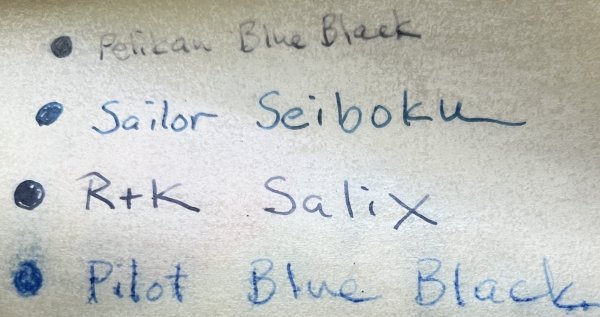 Pelikan Blue Black
Sailor Seiboku
R+K Salix
Pilot Blue Black